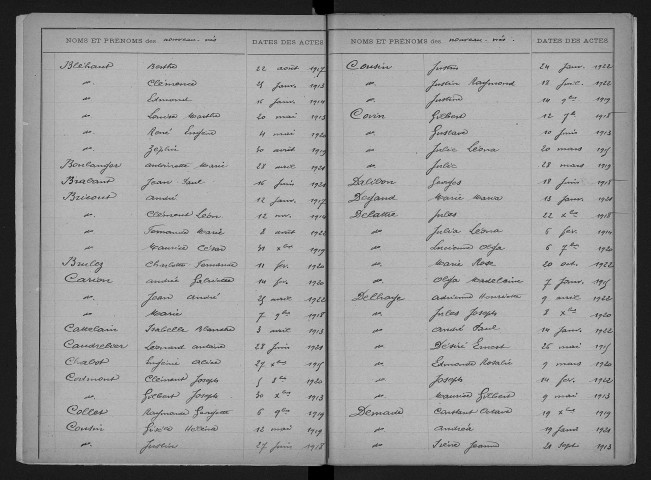 NOMS ET PRÉNOMS des nouveau-nés DATES DES ACTES
Bléhaut Berthe 22 août 1917
d° Clémence 25 janv. 1913
d° Edmond 16 janv. 1914
d° Louise Marthe 20 mai 1913
d° René Eugène 4 mai 1920
d° Zéphir 30 août 1919
Boulanger Antoinette Marie 28 1921
Brabant Jean Paul 16 juin 1920
Bricout André 12 janv. 1917
d° Clément Léon 12 nov. 1914
d° Fernande Marie 8 août 1922
d° Maurice César 31 xbre 1919
Brulez Charlotte Fernande 11 fév. 1920
Carion Andrée 10 fév. 1920
d° Jean André 25 avril 1922
d° Marie 7 9bre 1918
Castelain Isabelle Blanche 3 avril 1913
Caudrelier Léonard 28 juin 1920
Chabot Eugénie Alice 27 xbre 1915
Cormont Clément Joseph 5 1920
d° Gilbert Joseph 30 xbre 1913
Collet Raymonde 6 9bre 1919
Cousin Gisèle Hélène 12 mai 1919
d° 27 juin 1918
NOMS ET PRÉNOMS des nouveau-nés. DATES DES ACTES
Cousin 24 janv. 1922
d° Justin Raymond 1922
d° 14 9bre 1919
Covin Gilbert 12 1918
d° Gustave 10 juin 1913
d° Julie Léona 20 mars 1915
d° Julie 28 mars 1919
Georges 18 juin 1918
Marie Maria 13 janv. 1921
Delattre Jules 22 xbre 1918
d° Julia Léona 6 fév. 1914
d° Lucienne Olga 6 7bre 1920
d° Marie Rose 20 oct. 1922
d° Olga Madeleine 7 janv. 1915
Delhaye Adrienne Henriette 9 avril 1922
d° Jules Joseph 8 xbre 1920
d° André Paul 14 janv. 1922
d° Désiré Ernest 26 mai 1915
d° Edmonde Rosalie 9 mars 1920
d° Joseph 14 fév. 1922
d° Maurice Gilbert 9 mai 1913
Demade Constant 19 xbre 1919
d° Andrée 19 janv. 1920
d° Irène Jeanne 21 sept 1913